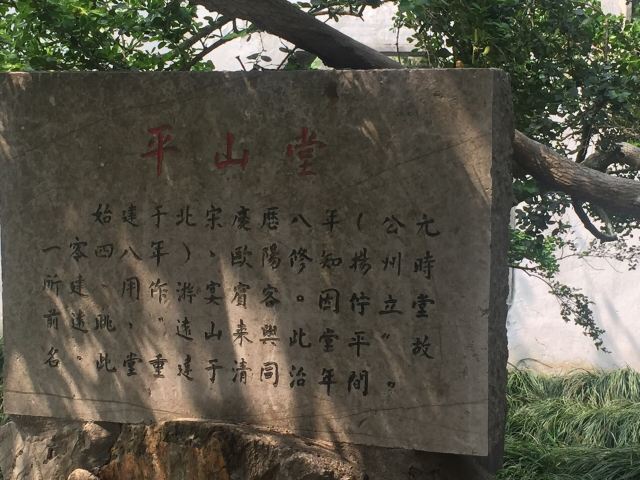 平山堂
始建于北宋慶曆八年(公元
一零四八年)、歐陽修知揚州時
所建,用作游宴賓客。因佇立堂
前遠眺、"遠山來與此堂平"故
名。此堂重建于清同治年間。